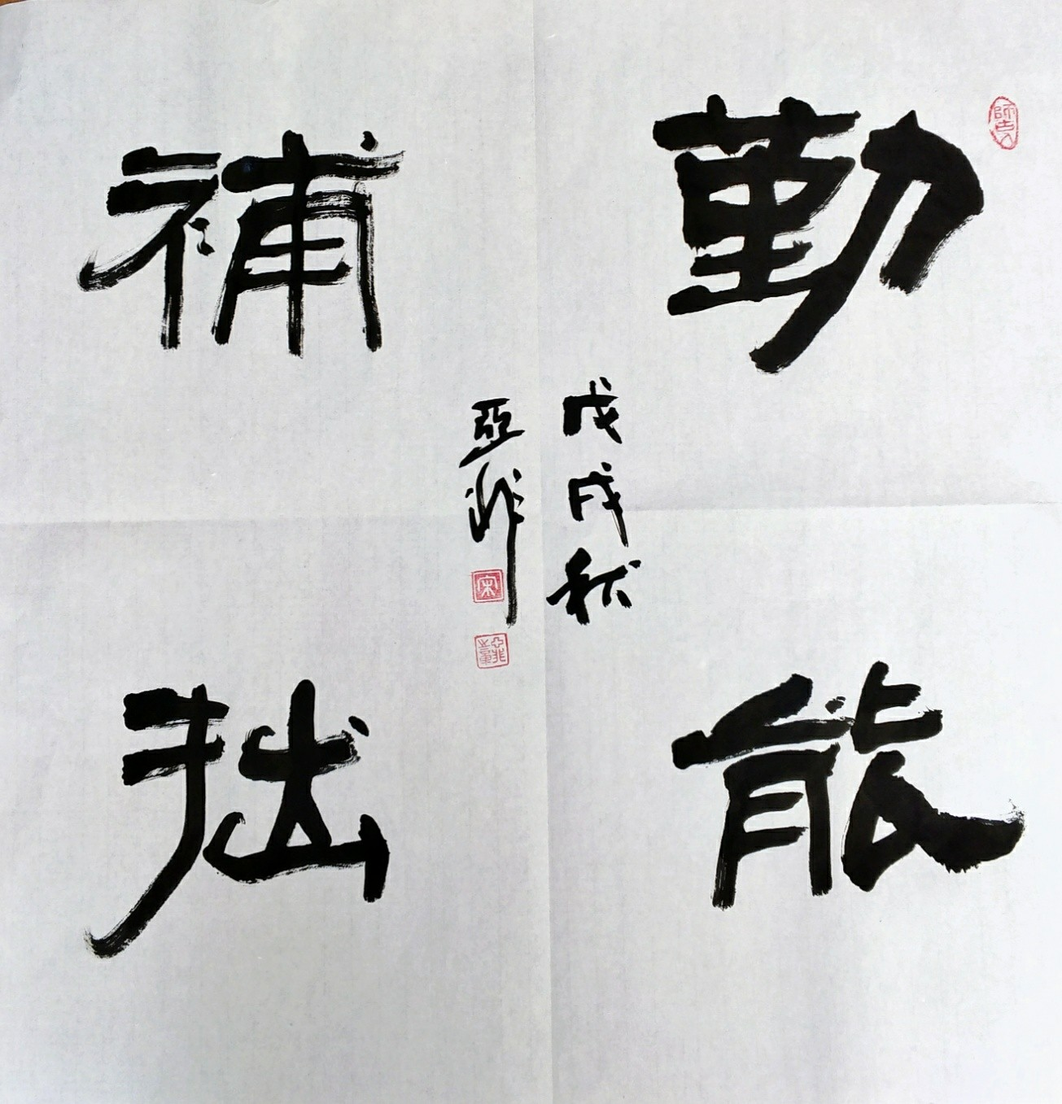 勤能
補拙
戊戌秋
亞非
宋